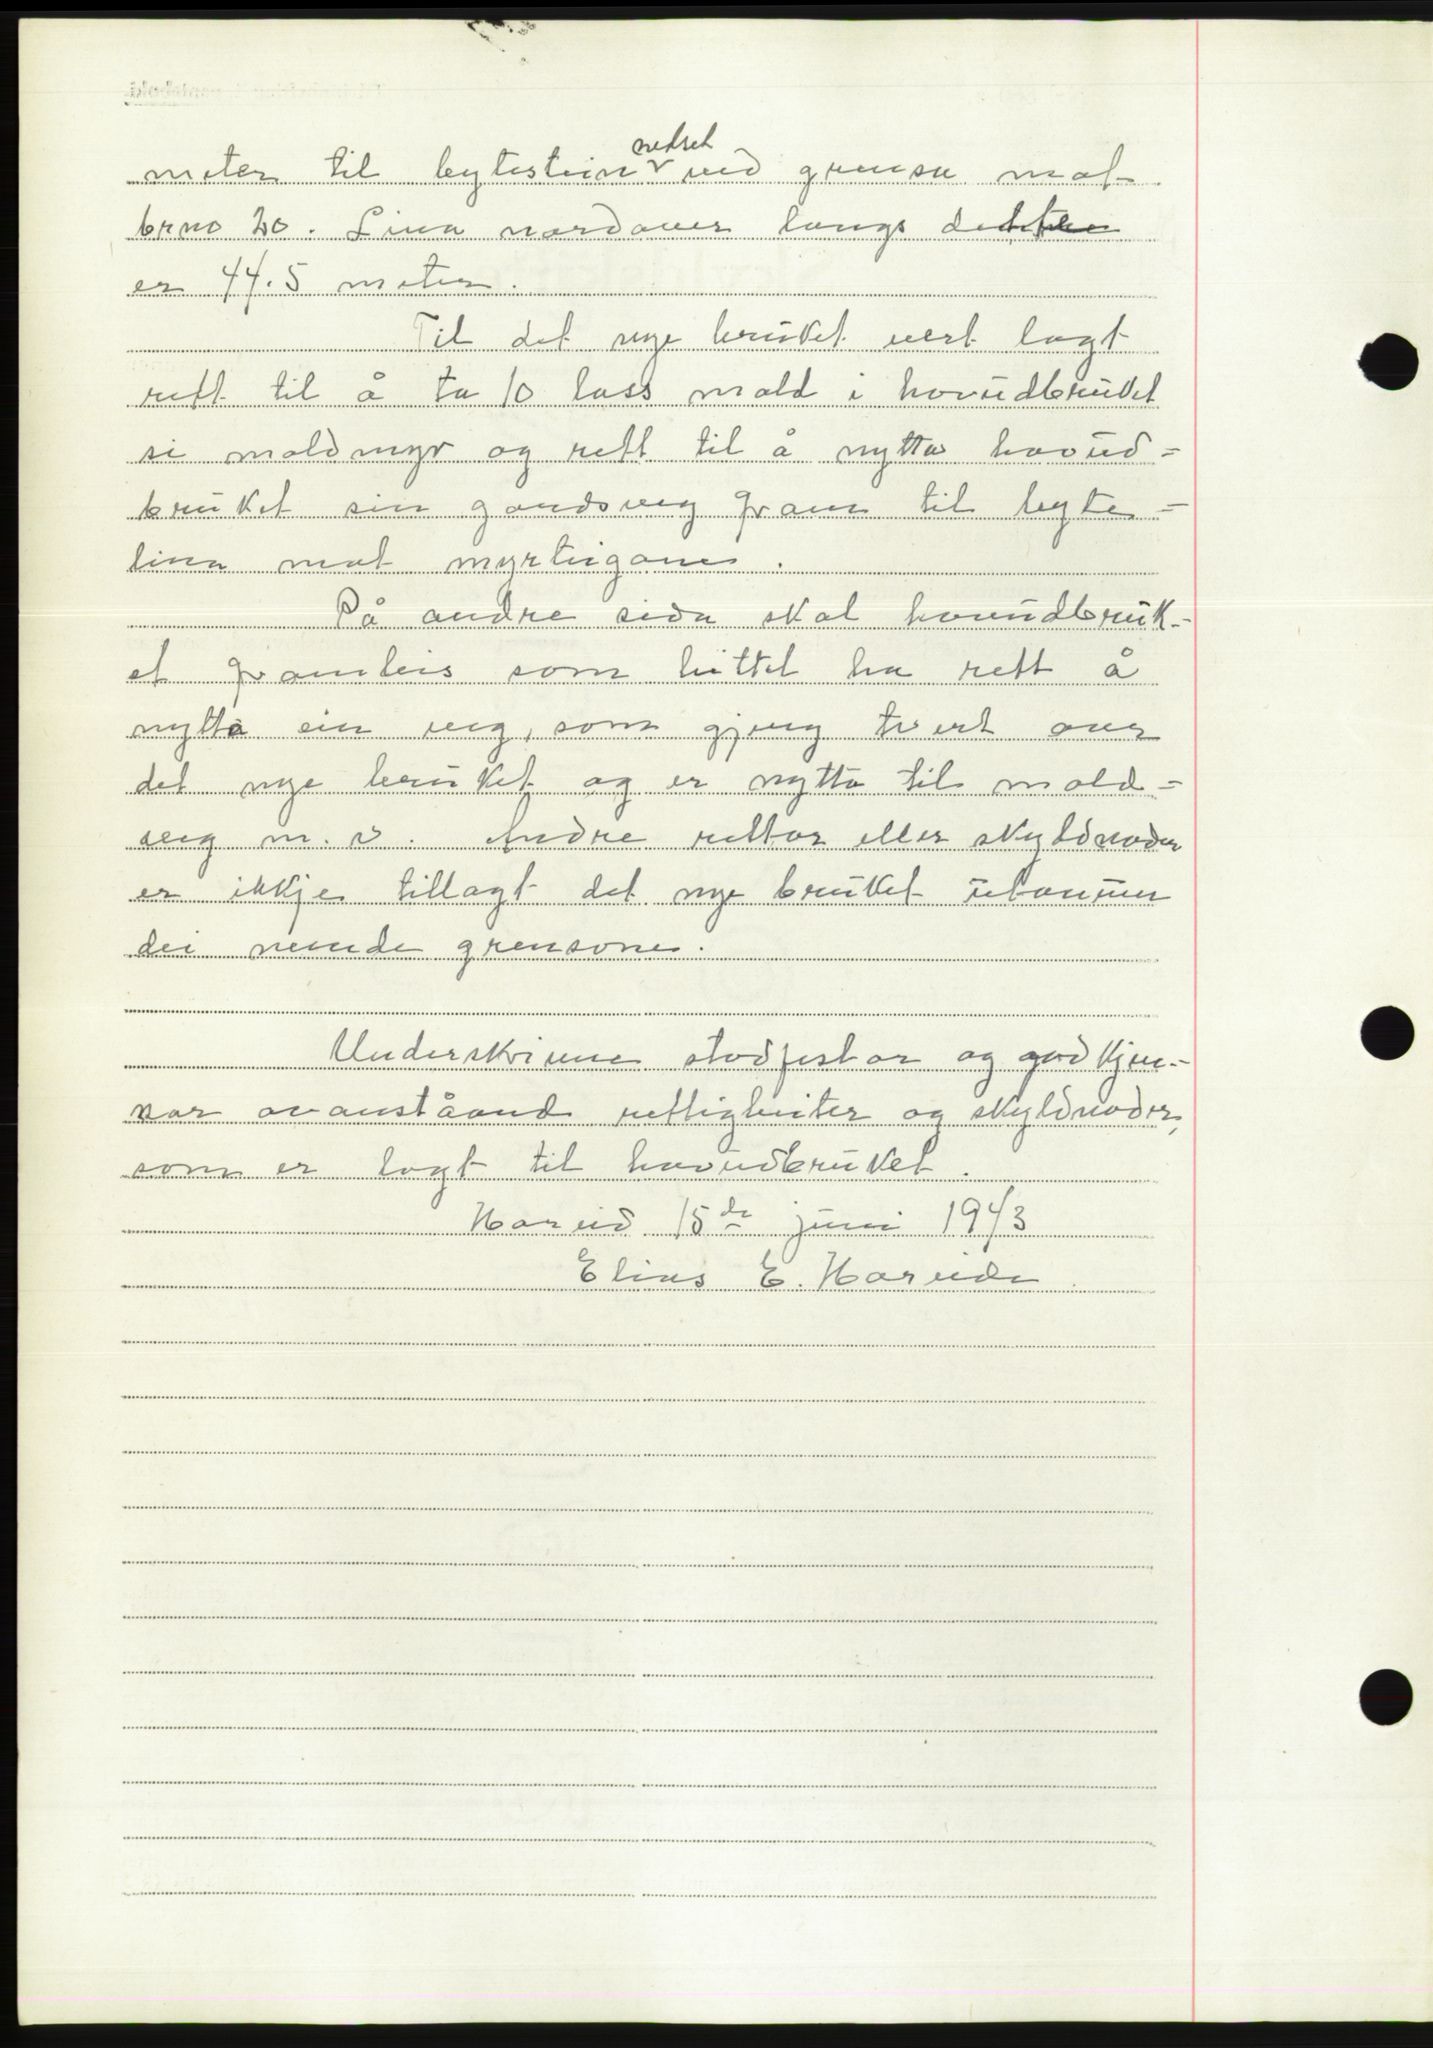 meter til bytestein nedset ved grensa mot
brno 20. Lina nordover langs dette
er 44.5 meter.
Til det nye bruket vert lagt
rett til å ta 10 lass mold i hovudbruket
si moldmyr og rett til å nytta hovud=
bruket sin gardsveg fram til byte=
lina mot myrteigane.
På andre sida skal hovudbruk-
et framleis som hittil ha rett å
nytta sin veg, som gjeng tvert over
det nye bruket og er nytta til mold=
veg m.v. Andre rettar eller skyldnader
er ikkje tillagt det nye bruket utanum
dei nemde grensone.
Underskrivne stadfestar og godkjen-
nar ovanståand rettigheiter og skyldnader,
som er lagt til hovudbruket.
Hareid 15de juni 1943
Elias E. Hareide